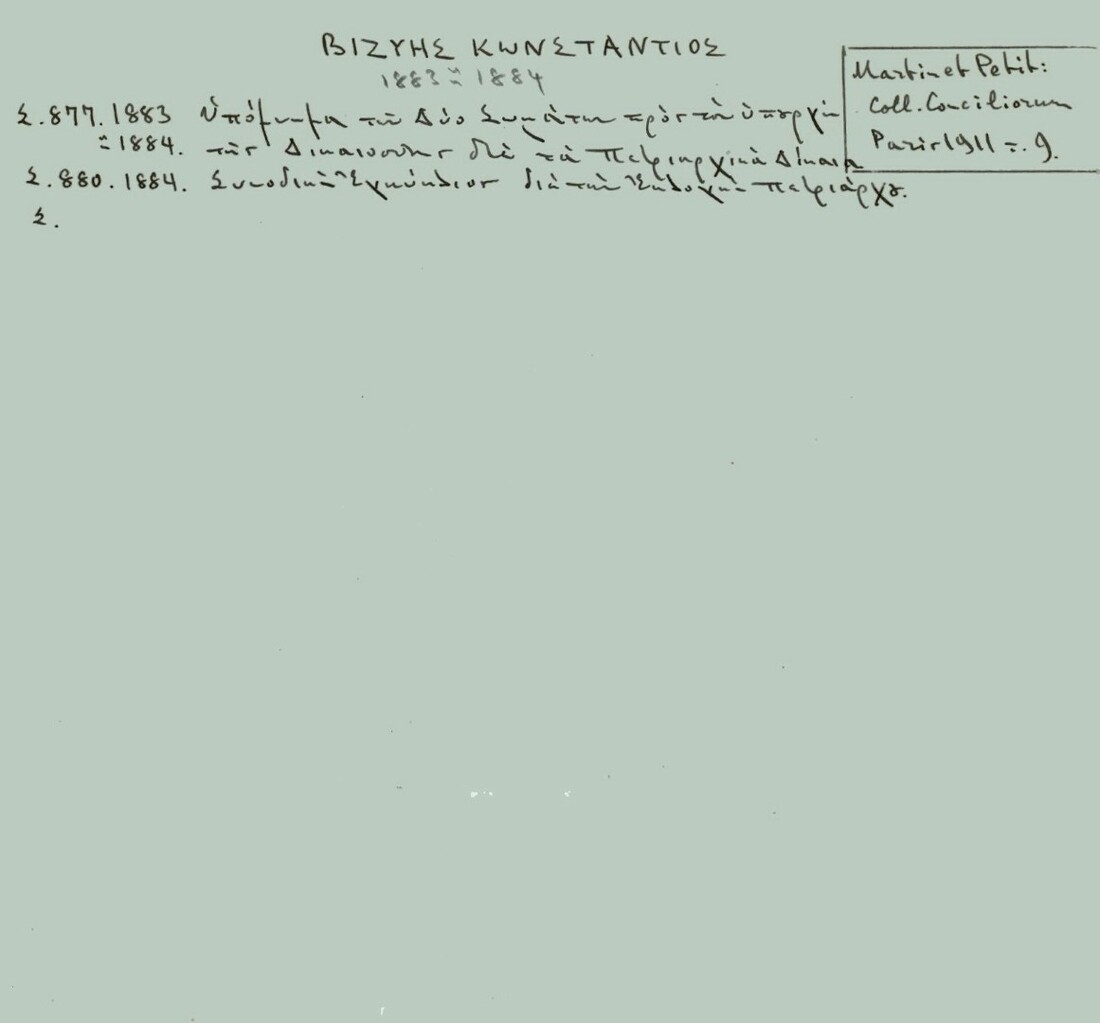 ΒΙΖΥΗΣ ΚΩΝΣΤΑΝΤΙΟΣ
1883 ῀ 1884
Martin et Petit:
Coll. Conciliorum
Paris 1911 =. 9.
Σ. 877. 1883 Ὑπόμνημα τῶν Δύο Σωμάτων πρὸς τὸν ὑπουργὸν
῀ 1884. τῆς Δικαιοσύνης διὰ τὰ Πατριαρχικὰ Δίκαια
Σ. 880. 1884. Συνοδικὴ Ἐγκύκλιος διὰ τὴν Ἐκλογὴν Πατριάρχου.
Σ.